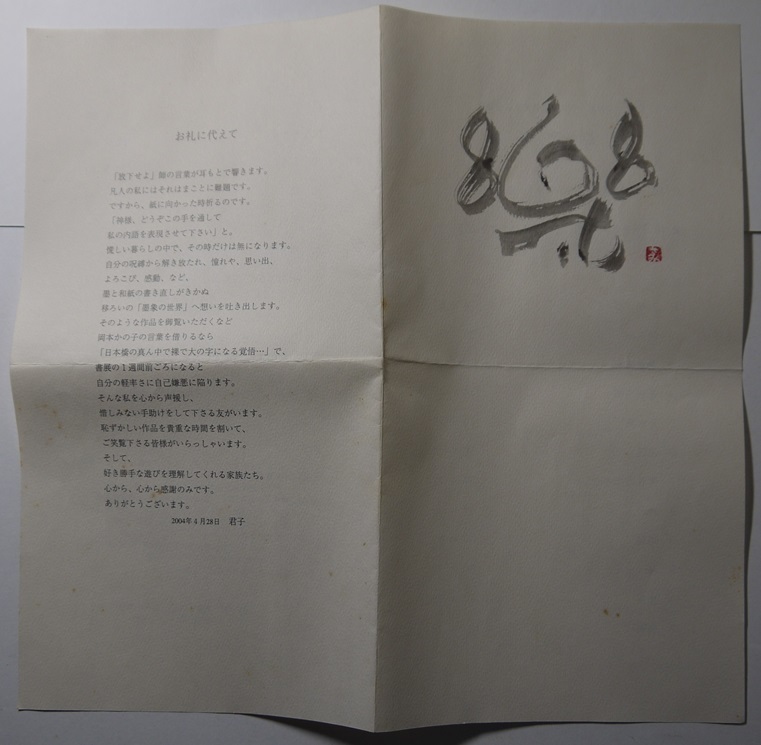 お礼に代えて
「放下せよ」師の言葉が耳もとで響きます。
凡人の私にはそれはまことに難題です。
ですから、紙に向かった時祈るのです。
「神様、どうぞこの手を通して
私の内語を表現させて下さい」と。
慢しい暮らしの中で、その時だけは無になります。
自分の呪縛から解き放たれ、憧れや、思い出、
よろこび、感動、など、
墨と和紙の書き直しがきかぬ
移ろいの「墨象の世界」へ想いを吐き出します。
そのような作品を御覧いただくなど
岡本かの子の言葉を借りるなら
「日本橋の真ん中で裸で大の字になる覚悟…」で、
書展の1週間前ごろになると
自分の軽率さに自己嫌悪に陥ります。
そんな私を心から声援し、
惜しみない手助けをして下さる友がいます。
恥ずかしい作品を貴重な時間を割いて、
ご笑覧下さる皆様がいらっしゃいます。
そして、
好き勝手な遊びを理解してくれる家族たち。
心から、心から感謝のみです。
ありがとうございます。
2004年4月28日 君子